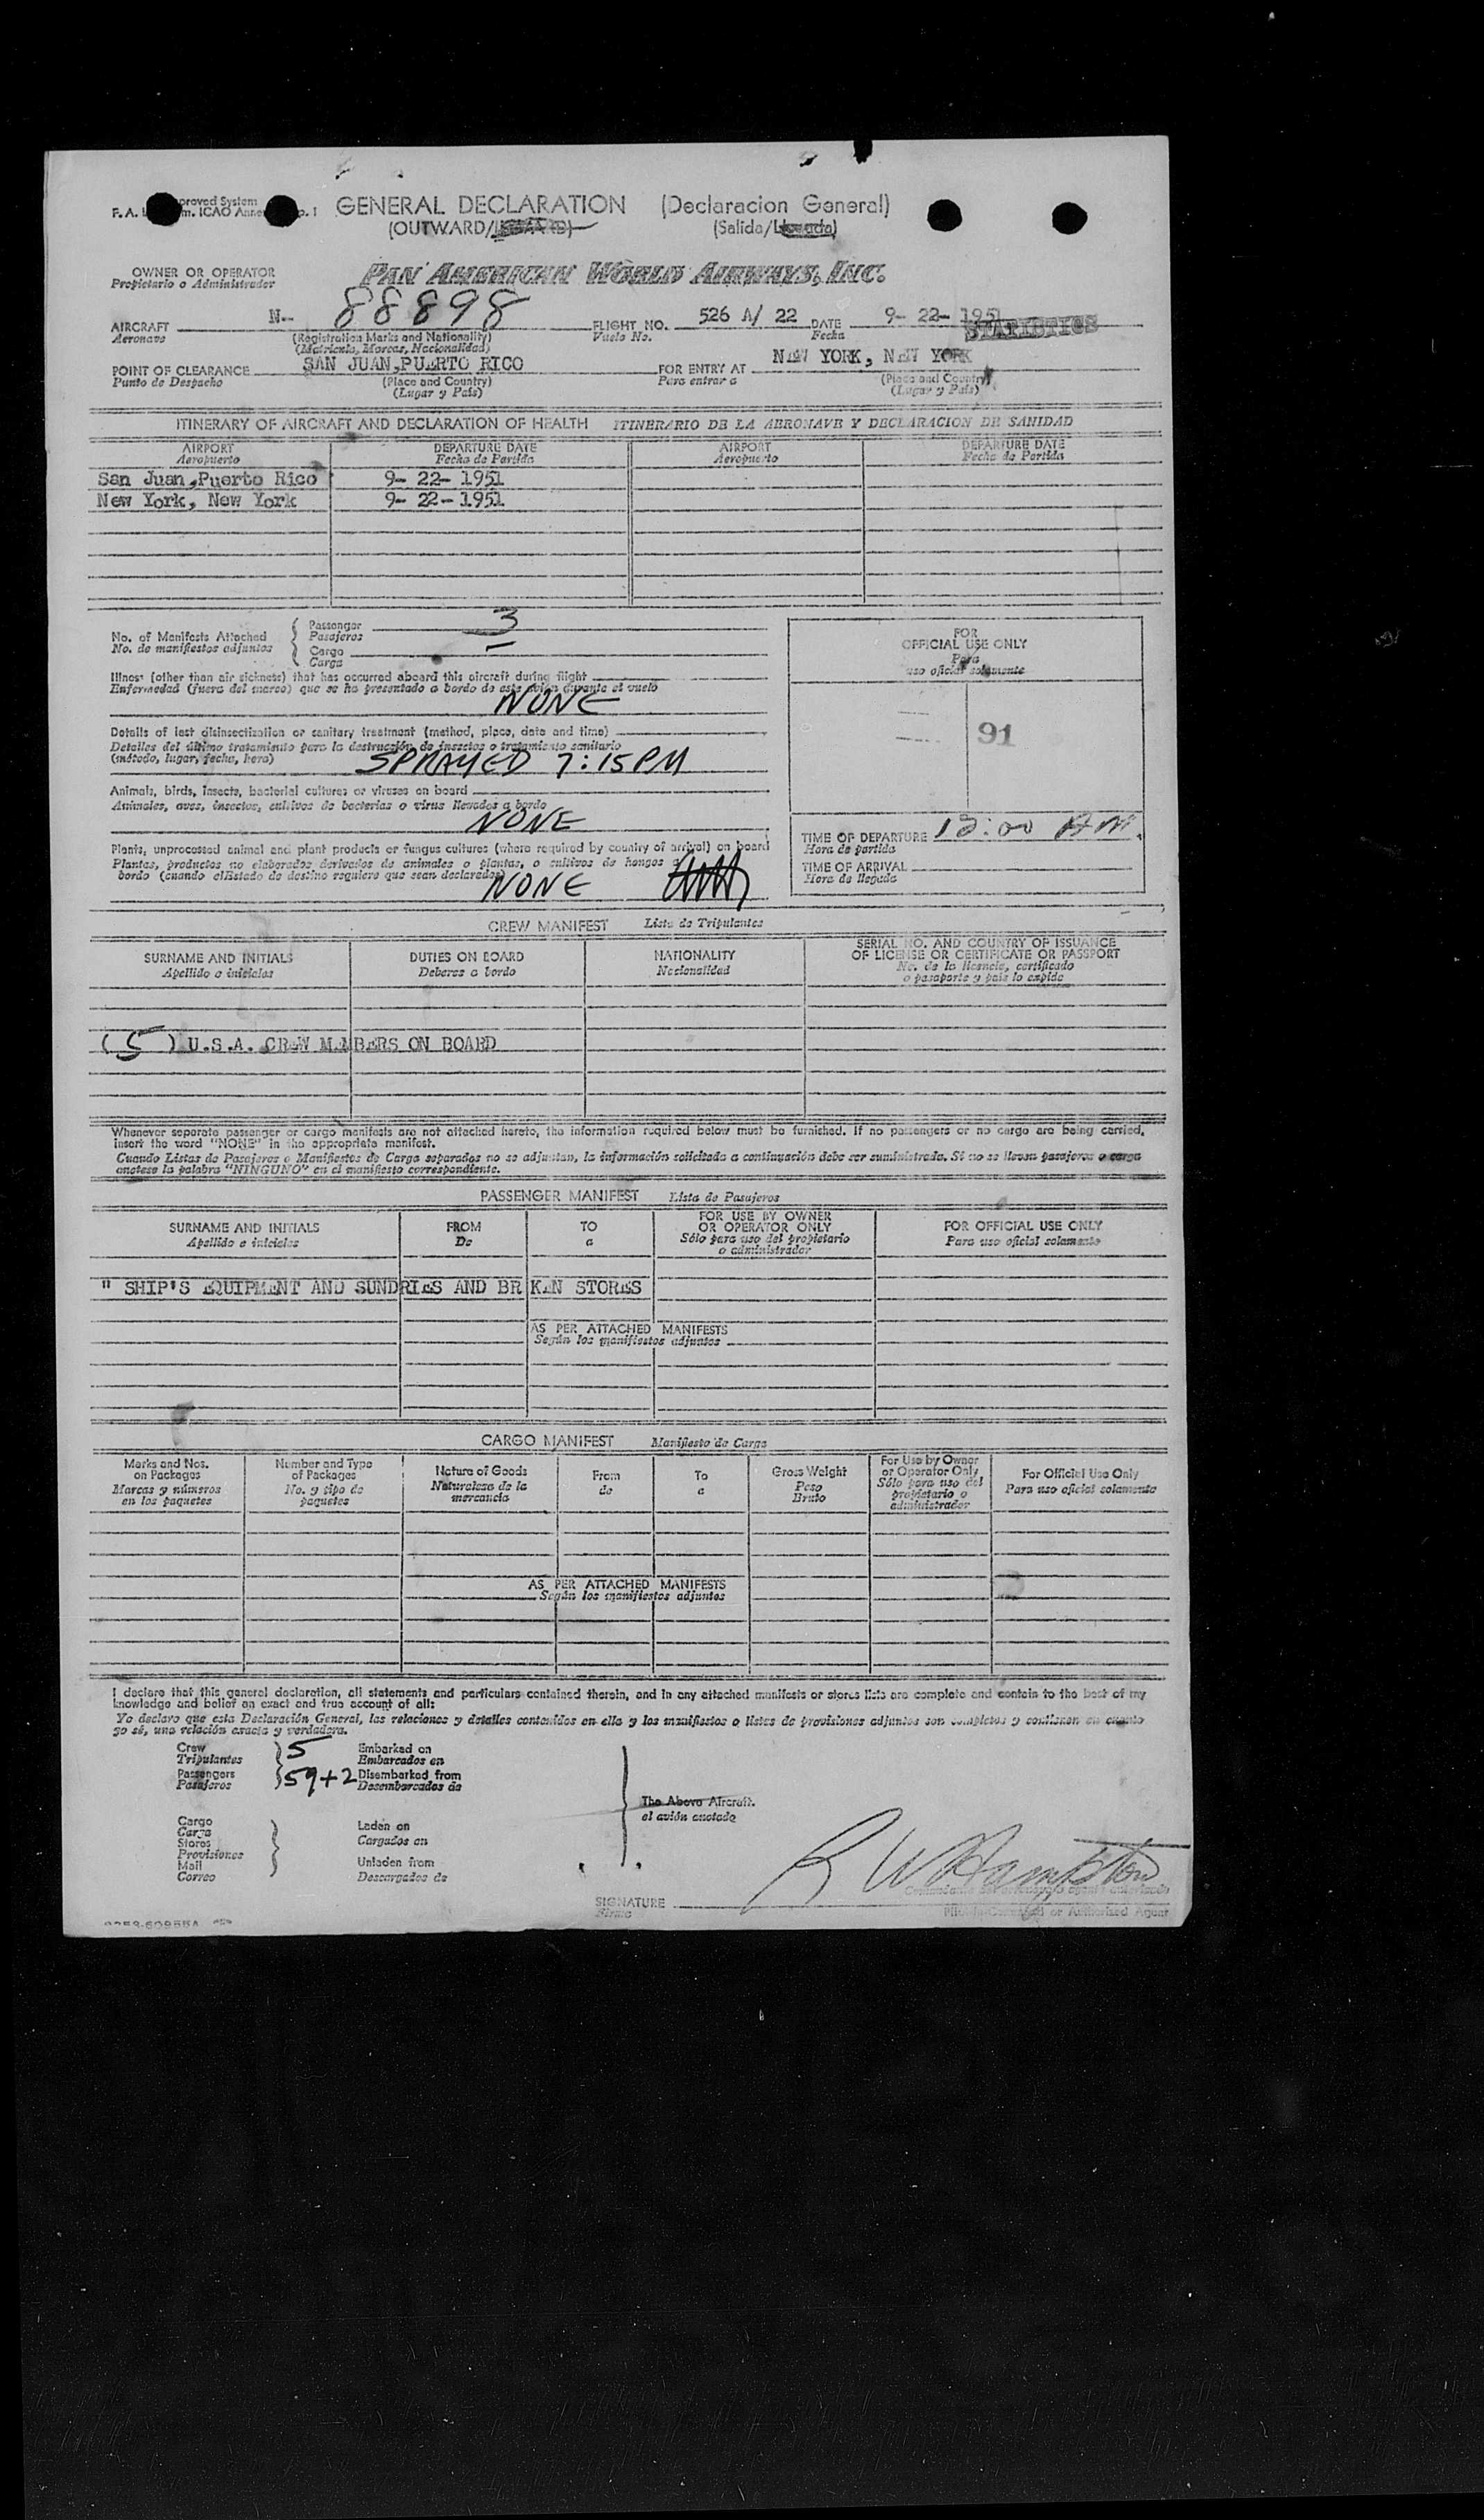 GENERAL DECLARATION (Declaracion General)
(OUTWARD/ (Salida/
OWNER OR OPERATOR PAN AMERICAN WORLD AIRWAYS, INC.
Propietario o Administrador
AIRCRAFT N- 88898 FLIGHT NO. 526 A/ 22 DATE 9- 22- 1951 STATISTICS
Aeronave (Registration Marks and Nationality) Vuelo No. Fecha
(Matricula, Marcas, Nacionalidad)
POINT OF CLEARANCE SAN JUAN, PUERTO RICO FOR ENTRY AT NEW YORK, NEW YORK
Punto de Despacho (Place and Country) Para entrar a (Place and Country)
(Lugar y País) (Lugar y País)
ITINERARY OF AIRCRAFT AND DECLARATION OF HEALTH ITINERARIO DE LA AERONAVE Y DECLARACION DE SANIDAD
AIRPORT DEPARTURE DATE AIRPORT DEPARTURE DATE
Aeropuerto Fecha de Partida Aeropuerto Fecha de Partida
San Juan, Puerto Rico 9- 22- 1951
New York, New York 9- 22- 1951
No. of Manifests Attached Passenger 3
No. de manifiestos adjuntos Pasajeros
Cargo —
Carga
FOR
OFFICIAL USE ONLY
Para
uso oficial solamente
91
Illness (other than air sickness) that has occurred aboard this aircraft during flight
Enfermedad (fuera del mareo) que se ha presentado a bordo de este avión durante el vuelo
NONE
Details of last disinsectization or sanitary treatment (method, place, date and time)
Detalles del último tratamiento para la destrucción de insectos o tratamiento sanitario
(método, lugar, fecha, hora) SPRAYED 7:15 PM
Animals, birds, insects, bacterial cultures or viruses on board
Animales, aves, insectos, cultivos de bacterias o virus llevados a bordo
NONE
TIME OF DEPARTURE 12:00 AM.
Hora de partida
TIME OF ARRIVAL
Hora de llegada
Plants, unprocessed animal and plant products or fungus cultures (where required by country of arrival) on board
Plantas, productos no elaborados derivados de animales o plantas, o cultivos de hongos
bordo (cuando el Estado de destino requiere que sean declarados)
NONE
CREW MANIFEST Lista de Tripulantes
SURNAME AND INITIALS DUTIES ON BOARD NATIONALITY SERIAL NO. AND COUNTRY OF ISSUANCE
OF LICENSE OR CERTIFICATE OR PASSPORT
Apellido e iniciales Deberes a bordo Nacionalidad No. de la licencia, certificado
o pasaporte y país lo expide
(5) U.S.A. CREW MEMBERS ON BOARD
Whenever separate passenger or cargo manifests are not attached hereto, the information required below must be furnished. If no passengers or no cargo are being carried,
insert the word "NONE" in the appropriate manifest.
Cuando Listas de Pasajeros o Manifiestos de Carga separados no se adjuntan, la información solicitada a continuación debe ser suministrada. Si no se llevan pasajeros o carga
anotese la palabra "NINGUNO" en el manifiesto correspondiente.
PASSENGER MANIFEST Lista de Pasajeros
SURNAME AND INITIALS FROM TO FOR USE BY OWNER FOR OFFICIAL USE ONLY
OR OPERATOR ONLY
Apellido e iniciales De a Sólo para uso del propietario Para uso oficial solamente
o administrador
" SHIP'S EQUIPMENT AND SUNDRIES AND BR KEN STORES
AS PER ATTACHED MANIFESTS
Según los manifiestos adjuntos
CARGO MANIFEST Manifiesto de Carga
Marks and Nos. on Packages Number and Type of Packages Nature of Goods From To Gross Weight For Use by Owner or Operator Only For Official Use Only
Marcas y números en los paquetes No. y tipo de paquetes Naturaleza de la mercancia de a Peso Bruto Sólo para uso del propietario o administrador Para uso oficial solamente
AS PER ATTACHED MANIFESTS
Según los manifiestos adjuntos
I declare that this general declaration, all statements and particulars contained therein, and in any attached manifests or stores lists are complete and contain to the best of my
knowledge and belief an exact and true account of all:
Yo declaro que esta Declaración General, las relaciones y detalles contenidos en ella y los manifiestos o listas de provisiones adjuntos son completos y contienen en cuanto
yo sé, una relación exacta y verdadera.
Crew 5 Embarked on
Tripulantes Embarcados en
Passengers 59+2 Disembarked from
Pasajeros Desembarcados de
The Above Aircraft.
el avión anotado
Cargo Laden on
Carga Cargados en
Stores
Provisiones
Mail Unladen from
Correo Descargados de
R W Hampton
SIGNATURE
Firma
Pilot-in-Command or Authorized Agent